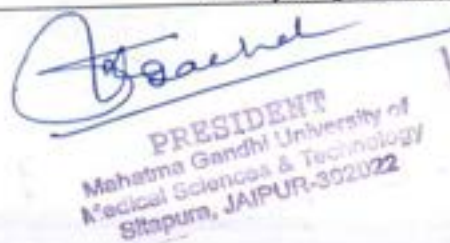 PRESIDENT
Mahatma Gandhi University of
Medical Sciences & Technology
Sitapura, JAIPUR-302022